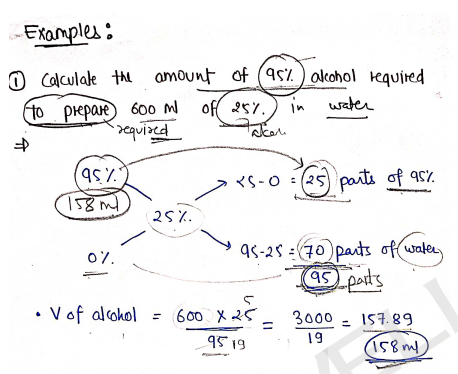 Examples:
① Calculate the amount of 95% alcohol required
to prepare 600 ml of 25% in water
required
⇒
95% 25-0 = 25 parts of 95%
158 ml
25%
0% 95-25 = 70 parts of water
95 parts
• V of alcohol = 600 × 25 / 95 = 3000 / 19 = 157.89
5
19
158 ml